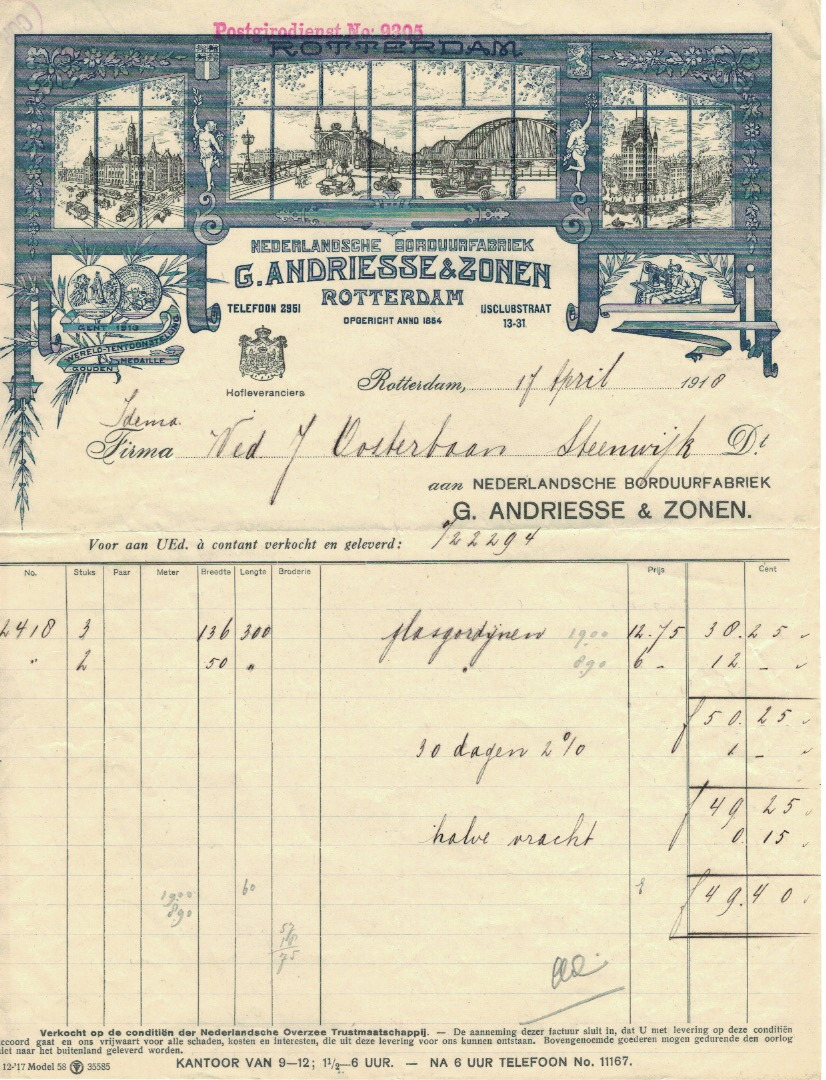 Postgirodienst No: 9305
ROTTERDAM
NEDERLANDSCHE BORDUURFABRIEK
G. ANDRIESSE & ZONEN
ROTTERDAM
TELEFOON 2951
IJSCLUBSTRAAT
13-31
OPGERICHT ANNO 1884
GENT 1913
WERELD-TENTOONSTELLING
GOUDEN MEDAILLE
Hofleveranciers
Rotterdam, 17 April 1918
Idema
Firma Wed J Oosterbaan Steenwijk Dt
aan NEDERLANDSCHE BORDUURFABRIEK
G. ANDRIESSE & ZONEN.
Voor aan UEd. à contant verkocht en geleverd: 22294
No. Stuks Paar Meter Breedte Lengte Broderie Prijs Cent
2418 3 136 300 glasgordijnen 19.00 12.75 38.25
" 2 50 " " 8.90 6 - 12 -
f 50.25
30 dagen 2% 1 -
f 49 25
halve vracht 0.15
f 49.40
60
19.00
8.90
75
Verkocht op de conditiën der Nederlandsche Overzee Trustmaatschappij. — De aanneming dezer factuur sluit in, dat U met levering op deze conditiën
ccoord gaat en ons vrijwaart voor alle schaden, kosten en interesten, die uit deze levering voor ons kunnen ontstaan. Bovengenoemde goederen mogen gedurende den oorlog
iet naar het buitenland geleverd worden.
12-'17 Model 58 35585
KANTOOR VAN 9–12; 1½–6 UUR. — NA 6 UUR TELEFOON No. 11167.